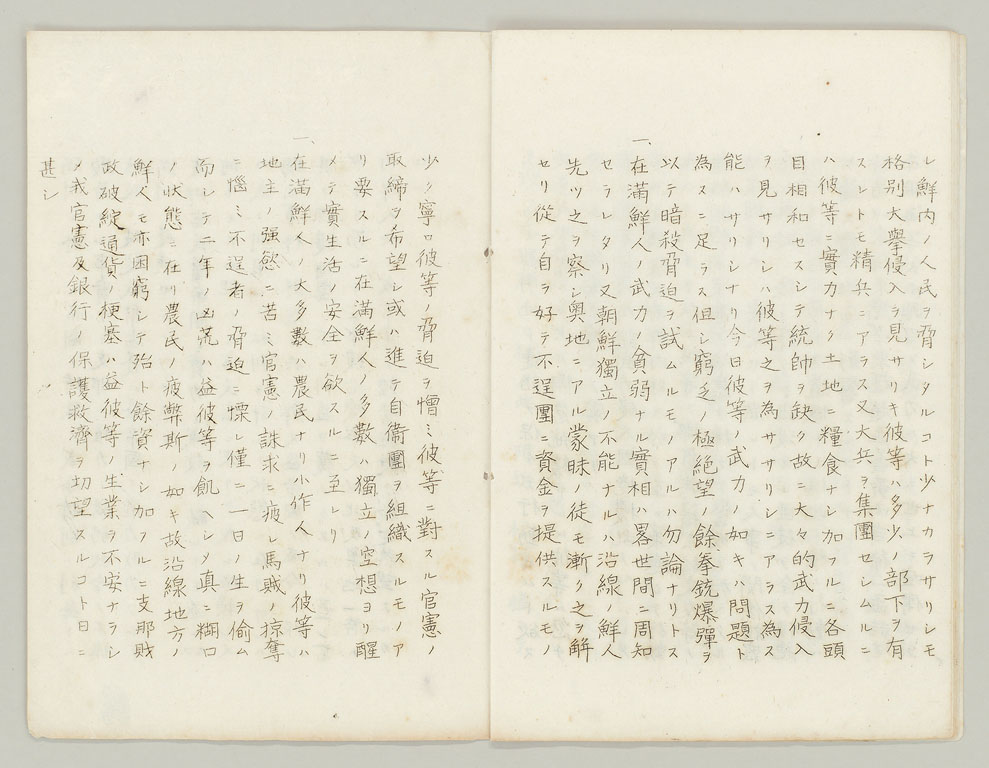 レ鮮内ノ人民ヲ脅シタルコト少ナカラサリシモ
格別大擧侵入ヲ見サリキ彼等ハ多少ノ部下ヲ有
スレトモ精兵ニアラス又大兵ヲ集團セシムルニ
ハ彼等ニ實力ナク土地ニ糧食ナシ加フルニ各頭
目相和セスシテ統帥ヲ缺ク故ニ大々的武力侵入
ヲ見サリシハ彼等之ヲ為ササリシニアラス為ス
能ハサリシナリ今日彼等ノ武力ノ如キハ問題ト
為スニ足ラス但シ窮乏ノ極絶望ノ餘拳銃爆彈ヲ
以テ暗殺脅迫ヲ試ムルモノアルハ勿論ナリトス
一、在滿鮮人ノ武力ノ貧弱ナル實相ハ畧世間ニ周知
セラレタリ又朝鮮獨立ノ不能ナルハ沿線ノ鮮人
先ツ之ヲ察シ奥地ニアル蒙昧ノ徒モ漸ク之ヲ解
セリ從テ自ラ好テ不逞團ニ資金ヲ提供スルモノ
少ク寧ロ彼等ノ脅迫ヲ憎ミ彼等ニ對スル官憲ノ
取締ヲ希望シ或ハ進テ自衞團ヲ組織スルモノア
リ要スルニ在滿鮮人ノ多數ハ獨立ノ空想ヨリ醒
メテ實生活ノ安全ヲ欲スルニ至レリ
一、在滿鮮人ノ大多數ハ農民ナリ小作人ナリ彼等ハ
地主ノ強慾ニ苦ミ官憲ノ誅求ニ疲レ馬賊ノ掠奪
ニ惱ミ不逞者ノ脅迫ニ慄レ僅ニ一日ノ生ヲ偷ム
而シテ二年ノ凶荒ハ益彼等ヲ飢ヘシメ真ニ糊口
ノ状態ニ在リ農民ノ疲弊斯ノ如キ故沿線地方ノ
鮮人モ亦困窮シテ殆ト餘資ナシ加フルニ支那財
政破綻通貨ノ梗塞ハ益彼等ノ生業ヲ不安ナラシ
メ我官憲及銀行ノ保護救濟ヲ切望スルコト日ニ
甚シ